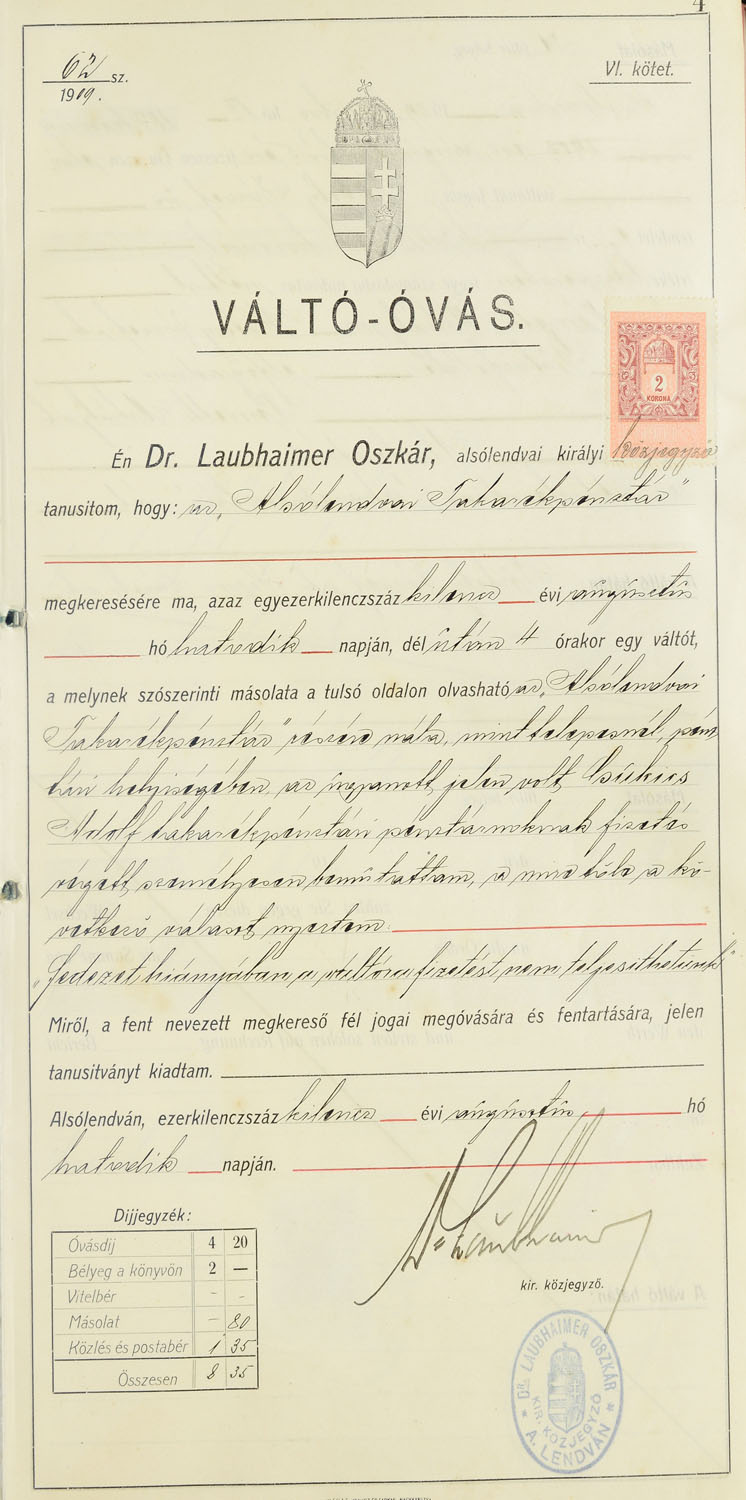 4
62 sz.
1909.
VI. kötet.
VÁLTÓ-ÓVÁS.
2
KORONA
Én Dr. Laubhaimer Oszkár, alsólendvai királyi közjegyző
tanusitom, hogy: az „Alsólendvai Takarékpénztár"
megkeresésére ma, azaz egyezerkilenczszáz kilencz évi augusztus
hó hatodik napján, dél után 4 órakor egy váltót,
a melynek szószerinti másolata a tulsó oldalon olvasható az „Alsólendvai
Takarékpénztár" részére nála, mint telepesnél, pénz-
tári helyiségében, az ugyanott jelen volt
Adolf takarékpénztári pénztárnoknak fizetés
végett személyesen bemutattam, a mire tőle a kö-
vetkező választ nyertem:
„Fedezet hiányában a váltóra fizetést nem teljesithetünk"
Miről, a fent nevezett megkereső fél jogai megóvására és fentartására, jelen
tanusitványt kiadtam.
Alsólendván, ezerkilenczszáz kilencz évi augusztus hó
hatodik napján.
Dr Laubhaimer
kir. közjegyző.
Dijjegyzék:
Óvásdij 4 20
Bélyeg a könyvön 2 —
Vitelbér - -
Másolat — 80
Közlés és postabér 1 35
Összesen 8 35
DR. LAUBHAIMER OSZKÁR
KIR. KÖZJEGYZŐ
A. LENDVÁN